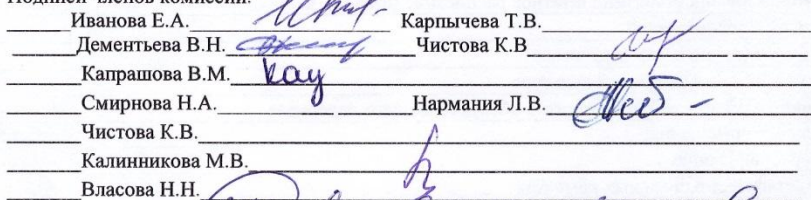 Подписи членов комиссии:
Иванова Е.А. Карпычева Т.В.
Дементьева В.Н. Чистова К.В
Капрашова В.М. Кау
Смирнова Н.А. Нармания Л.В.
Чистова К.В.
Калинникова М.В.
Власова Н.Н.